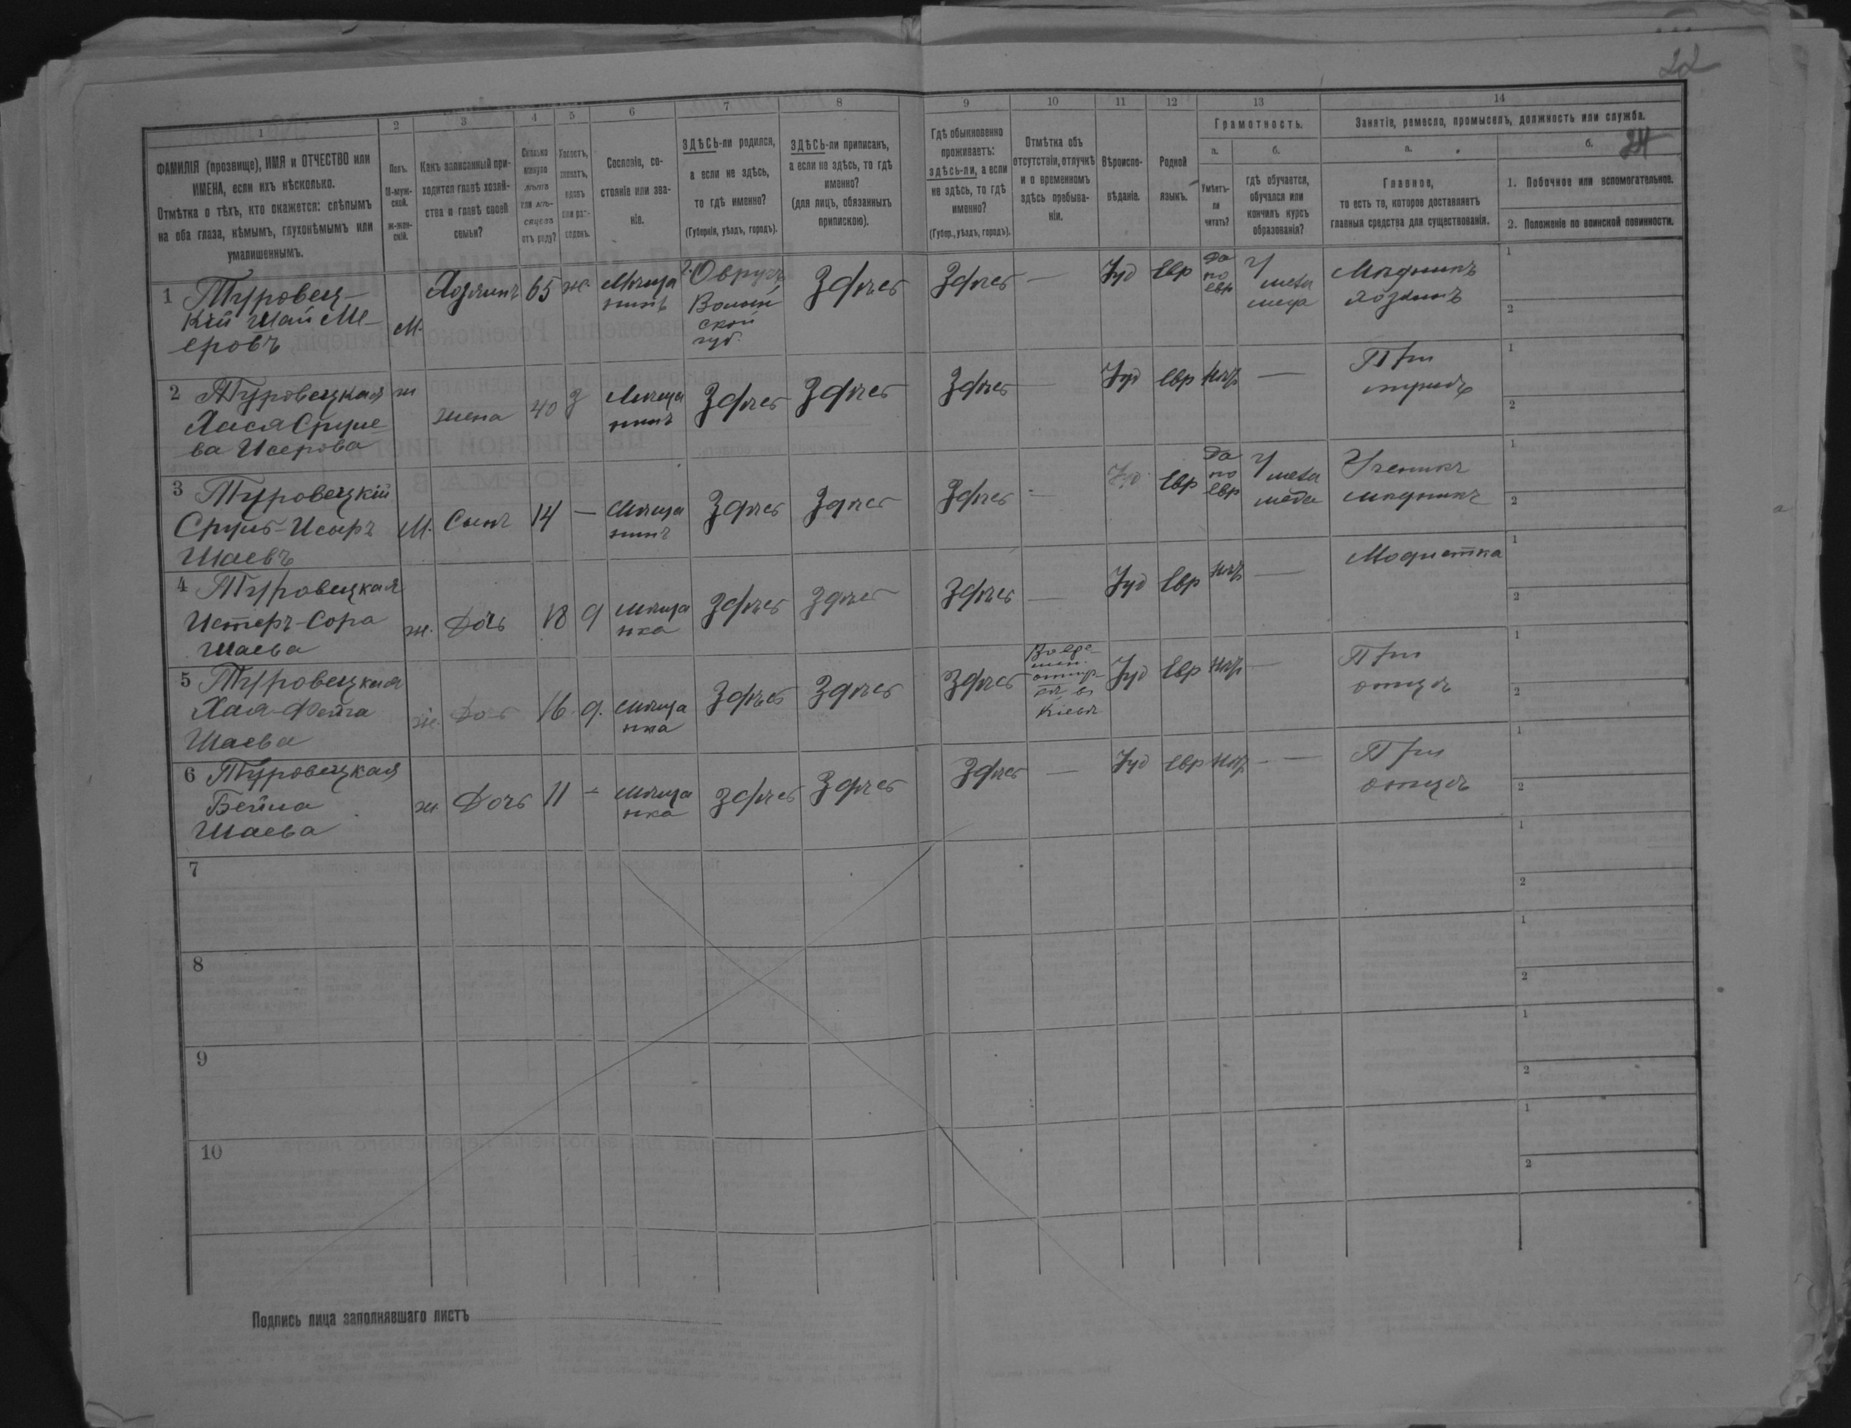 22
24
1 2 3 4 5 6 7 8 9 10 11 12 13 14
ФАМИЛІЯ (прозвище), ИМЯ и ОТЧЕСТВО или
ИМЕНА, если ихъ нѣсколько.
Отмѣтка о тѣхъ, кто окажется: слѣпымъ
на оба глаза, нѣмымъ, глухонѣмымъ или
умалишеннымъ.
Полъ.
М-муж-
ской.
ж-жен-
скій.
Какъ записанный при-
ходится главѣ хозяй-
ства и главѣ своей
семьи?
Сколько
минуло
лѣтъ
или мѣ-
сяцевъ
отъ роду?
Холостъ,
женатъ,
вдовъ
или раз-
веденъ.
Сословіе, со-
стояніе или зва-
ніе.
ЗДѢСЬ-ли родился,
а если не здѣсь,
то гдѣ именно?
(Губернія, уѣздъ, городъ).
ЗДѢСЬ-ли приписанъ,
а если не здѣсь, то гдѣ
именно?
(для лицъ, обязанныхъ
припискою).
Гдѣ обыкновенно
проживаетъ:
здѣсь-ли, а если
не здѣсь, то гдѣ
именно?
(Губер., уѣздъ, городъ).
Отмѣтка объ
отсутствіи, отлучкѣ
и о временномъ
здѣсь пребыва-
ніи.
Вѣроиспо-
вѣданіе.
Родной
языкъ.
Грамотность.
а.
Умѣетъ-
ли
читать?
б.
гдѣ обучается,
обучался или
кончилъ курсъ
образованія?
Занятіе, ремесло, промыселъ, должность или служба.
а.
Главное,
то есть то, которое доставляетъ
главныя средства для существованія.
б.
1. Побочное или вспомогательное.
2. Положеніе по воинской повинности.
1 Туровец-
кій Шай Ме-
еровъ
М.
Хозяинъ 65 ж
Мѣща
нинъ
г. Овручъ
Волын
ской
губ.
Здѣсь Здѣсь — Іуд Евр
Да
по
евр
У
мела
меда
Мѣдникъ
хозяинъ
1
2
2 Туровецкая
Хася Сруле
ва Исерова
ж жена 40 з
Мѣща
нинъ
Здѣсь Здѣсь Здѣсь — Іуд Евр нѣт —
При
мужѣ
1
2
3 Туровецкій
Сруль-Исеръ
Шаевъ
М. Сынъ 14 —
Мѣща
нинъ
Здѣсь Здѣсь Здѣсь — Іуд Евр
Да
по
Евр
У
мела
меда
Ученикъ
мѣдникъ
1
2
4 Туровецкая
Истеръ-Сора
Шаева
ж. Дочь 18 д
мѣща
нка
Здѣсь Здѣсь Здѣсь — Іуд Евр нѣт —
Модистка
1
2
5 Туровецкая
Хая-Фейга
Шаева
ж. Доч 16 д.
мѣща
нка
Здѣсь Здѣсь Здѣсь
въ
Кіевѣ
Іуд Евр нѣт —
При
отцѣ
1
2
6 Туровецкая
Бейла
Шаева
ж Дочь 11 —
мѣща
нка
Здѣсь Здѣсь Здѣсь — Іуд Евр нѣт — —
При
отцѣ
1
2
7
1
2
8
1
2
9
1
2
10
1
2
Подпись лица заполнявшаго листъ